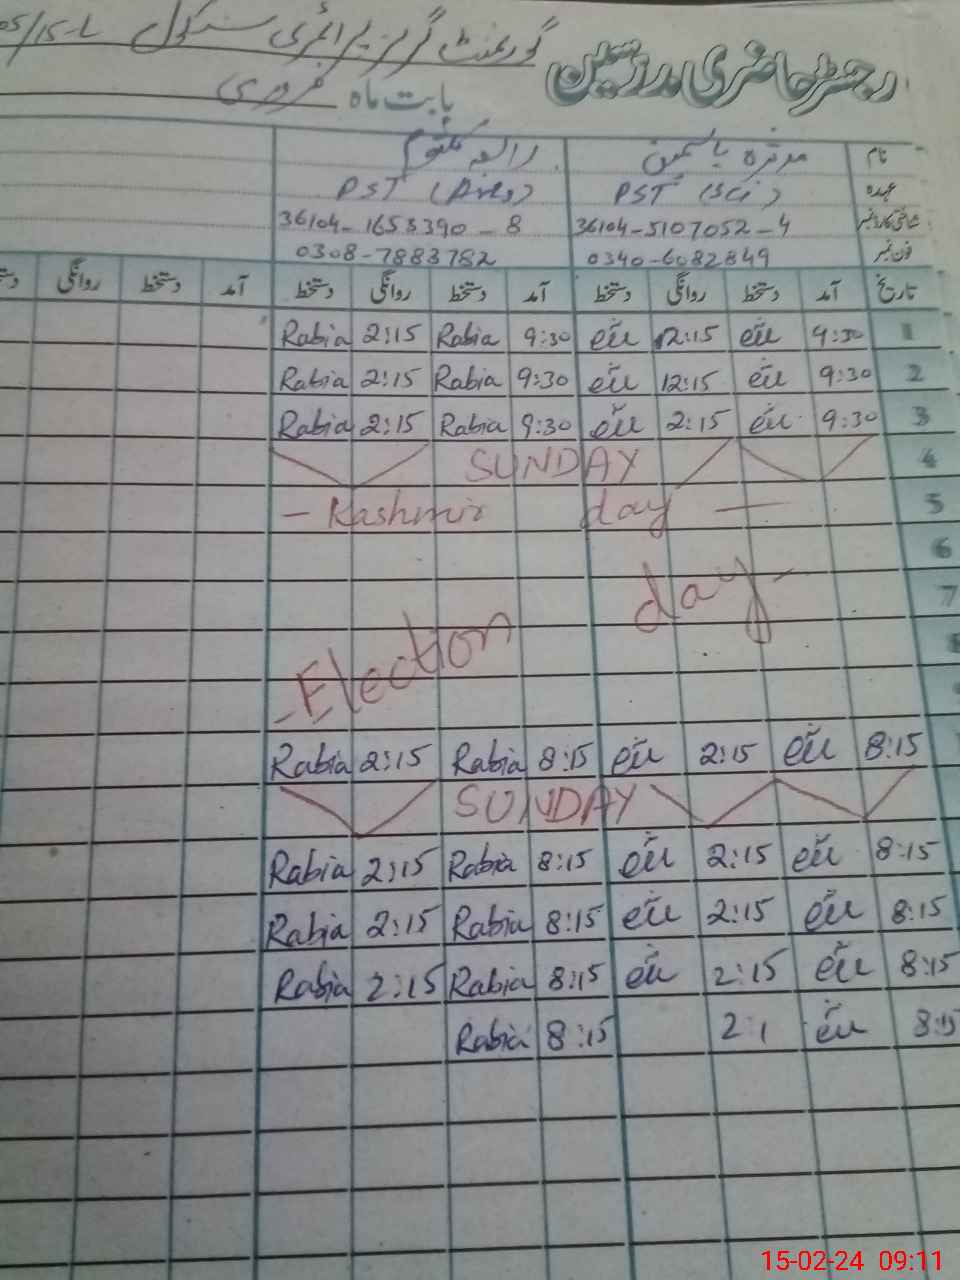 رجسٹر حاضری مدرسین گورنمنٹ گرلز پرائمری سکول 15-L
بابت ماہ فروری
نام یاسمین رابعہ کلثوم
عہدہ PST (Sci) PST (Arts)
شناختی کارڈ نمبر 36104-5107052-4 36104-1653390-8
فون نمبر 0340-6082849 0308-7883782
تاریخ آمد دستخط روانگی دستخط آمد دستخط روانگی دستخط آمد دستخط روانگی
1 9:30 12:15 9:30 Rabia 2:15 Rabia
2 9:30 12:15 9:30 Rabia 2:15 Rabia
3 9:30 2:15 9:30 Rabia 2:15 Rabia
4 SUNDAY
5 - Kashmir day -
6
7
- Election day -
8:15 2:15 8:15 Rabia 2:15 Rabia
SUNDAY
8:15 2:15 8:15 Rabia 2:15 Rabia
8:15 2:15 8:15 Rabia 2:15 Rabia
8:15 2:15 8:15 Rabia 2:15 Rabia
8:15 2:1 8:15 Rabia
15-02-24 09:11